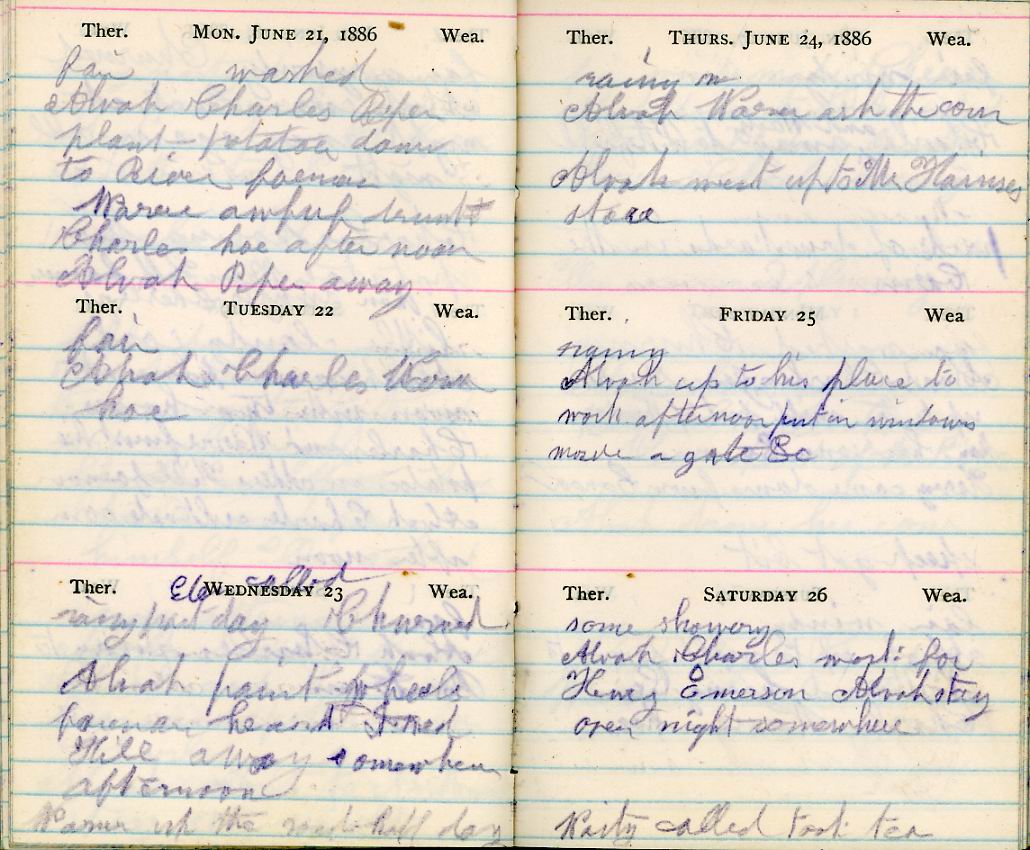 Ther. MON. JUNE 21, 1886 Wea.
Fair washed
Alvah Charles Piper
plant potatoes down
to River forenoon
awful
Charles hoe after noon
Alvah Piper away
Ther. TUESDAY 22 Wea.
fair
Alvah Charles
hoe
called
Ther. WEDNESDAY 23 Wea.
rainy part day Churned
Alvah paint wheels
forenoon
Will away somewhere
afternoon
up the road half day
Ther. THURS. JUNE 24, 1886 Wea.
rainy
Alvah the corn
Alvah went up to Mr
store
Ther. FRIDAY 25 Wea
rainy
Alvah up to his place to
work afternoon put in windows
made a gate &c
Ther. SATURDAY 26 Wea.
some showery
Alvah Charles work for
Henry Emerson Alvah stay
over night somewhere
called took tea